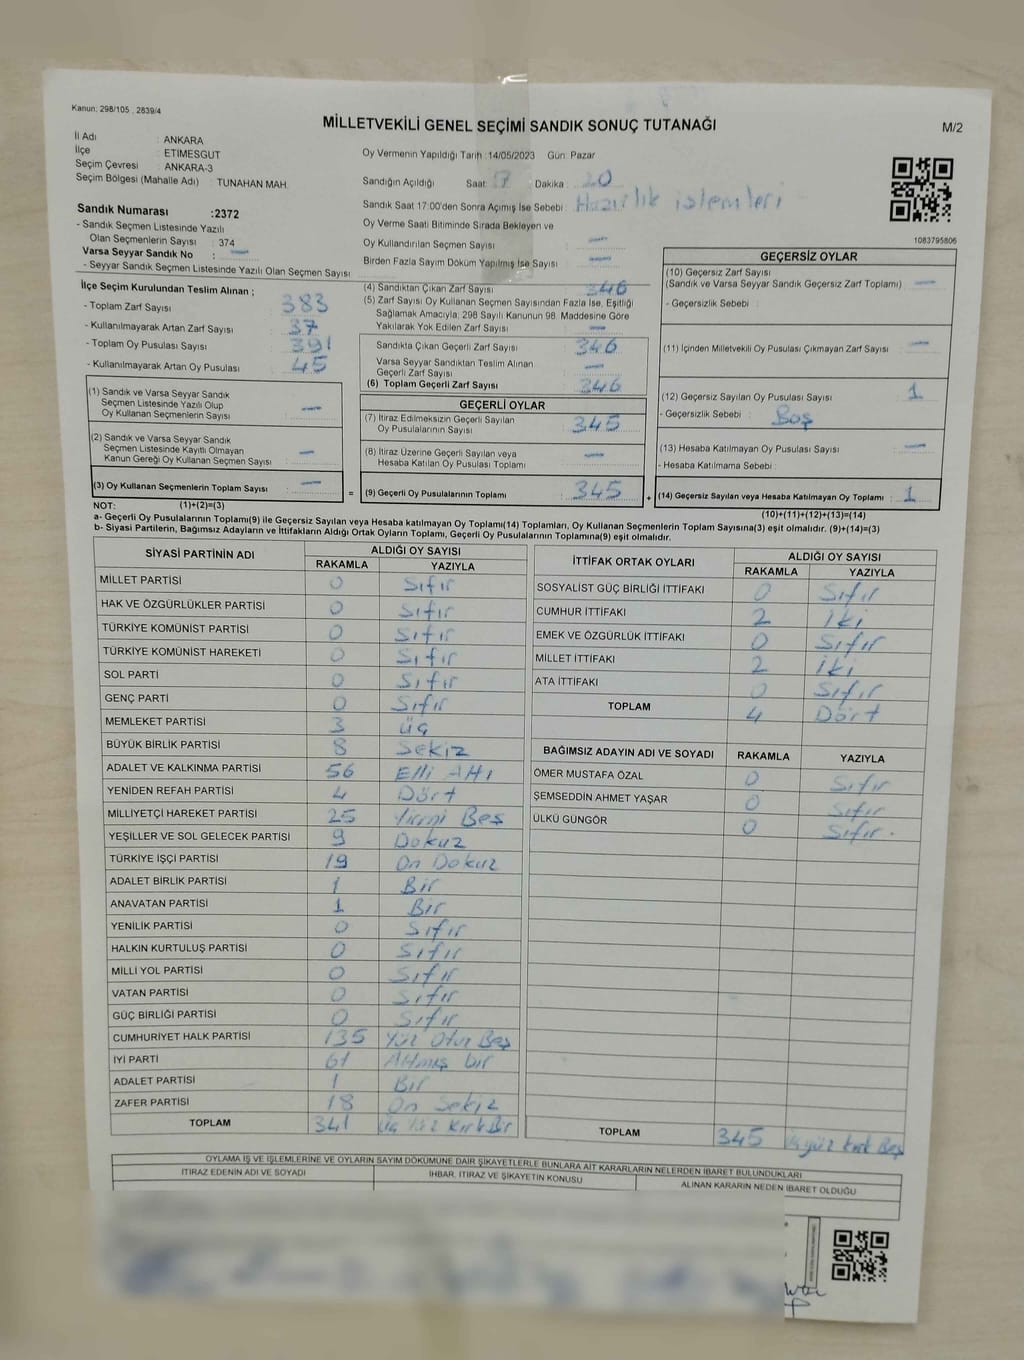 Kanun: 298/105 , 2839/4
MİLLETVEKİLİ GENEL SEÇİMİ SANDIK SONUÇ TUTANAĞI
M/2
İl Adı : ANKARA
İlçe : ETİMESGUT
Seçim Çevresi : ANKARA-3
Seçim Bölgesi (Mahalle Adı) : TUNAHAN MAH.
Oy Vermenin Yapıldığı Tarih :14/05/2023 Gün: Pazar
Sandığın Açıldığı Saat: 17 Dakika : 20
Sandık Saat 17:00'den Sonra Açımış İse Sebebi : Hazırlık işlemleri
Oy Verme Saati Bitiminde Sırada Bekleyen ve
Oy Kullandırılan Seçmen Sayısı : —
Birden Fazla Sayım Döküm Yapılmış İse Sayısı : —
1083795806
Sandık Numarası :2372
- Sandık Seçmen Listesinde Yazılı
Olan Seçmenlerin Sayısı : 374
Varsa Seyyar Sandık No : —
- Seyyar Sandık Seçmen Listesinde Yazılı Olan Seçmen Sayısı
İlçe Seçim Kurulundan Teslim Alınan ;
- Toplam Zarf Sayısı : 383
- Kullanılmayarak Artan Zarf Sayısı : 37
- Toplam Oy Pusulası Sayısı : 391
- Kullanılmayarak Artan Oy Pusulası : 45
(1) Sandık ve Varsa Seyyar Sandık
Seçmen Listesinde Yazılı Olup
Oy Kullanan Seçmenlerin Sayısı : —
(2) Sandık ve Varsa Seyyar Sandık
Seçmen Listesinde Kayıtlı Olmayan
Kanun Gereği Oy Kullanan Seçmen Sayısı : —
(3) Oy Kullanan Seçmenlerin Toplam Sayısı : —
(4) Sandıktan Çıkan Zarf Sayısı : 346
(5) Zarf Sayısı Oy Kullanan Seçmen Sayısından Fazla İse, Eşitliği
Sağlamak Amacıyla; 298 Sayılı Kanunun 98. Maddesine Göre
Yakılarak Yok Edilen Zarf Sayısı : —
Sandıkta Çıkan Geçerli Zarf Sayısı : 346
Varsa Seyyar Sandıktan Teslim Alınan
Geçerli Zarf Sayısı : —
(6) Toplam Geçerli Zarf Sayısı : 346
GEÇERLİ OYLAR
(7) İtiraz Edilmeksizin Geçerli Sayılan
Oy Pusulalarının Sayısı : 345
(8) İtiraz Üzerine Geçerli Sayılan veya
Hesaba Katılan Oy Pusulası Toplamı : —
= (9) Geçerli Oy Pusulalarının Toplamı : 345 +
GEÇERSİZ OYLAR
(10) Geçersiz Zarf Sayısı
(Sandık ve Varsa Seyyar Sandık Geçersiz Zarf Toplamı) : —
- Geçersizlik Sebebi :
(11) İçinden Milletvekili Oy Pusulası Çıkmayan Zarf Sayısı : —
(12) Geçersiz Sayılan Oy Pusulası Sayısı : 1
- Geçersizlik Sebebi : Boş
(13) Hesaba Katılmayan Oy Pusulası Sayısı : —
- Hesaba Katılmama Sebebi :
(14) Geçersiz Sayılan veya Hesaba Katılmayan Oy Toplamı : 1
NOT: (1)+(2)=(3)
(10)+(11)+(12)+(13)=(14)
a- Geçerli Oy Pusulalarının Toplamı(9) ile Geçersiz Sayılan veya Hesaba katılmayan Oy Toplamı(14) Toplamları, Oy Kullanan Seçmenlerin Toplam Sayısına(3) eşit olmalıdır. (9)+(14)=(3)
b- Siyasi Partilerin, Bağımsız Adayların ve İttifakların Aldığı Ortak Oyların Toplamı, Geçerli Oy Pusulalarının Toplamına(9) eşit olmalıdır.
SİYASİ PARTİNİN ADI ALDIĞI OY SAYISI
RAKAMLA YAZIYLA
MİLLET PARTİSİ 0 Sıfır
HAK VE ÖZGÜRLÜKLER PARTİSİ 0 Sıfır
TÜRKİYE KOMÜNİST PARTİSİ 0 Sıfır
TÜRKİYE KOMÜNİST HAREKETİ 0 Sıfır
SOL PARTİ 0 Sıfır
GENÇ PARTİ 0 Sıfır
MEMLEKET PARTİSİ 3 Üç
BÜYÜK BİRLİK PARTİSİ 8 Sekiz
ADALET VE KALKINMA PARTİSİ 56 Elli Altı
YENİDEN REFAH PARTİSİ 4 Dört
MİLLİYETÇİ HAREKET PARTİSİ 25 Yirmi Beş
YEŞİLLER VE SOL GELECEK PARTİSİ 9 Dokuz
TÜRKİYE İŞÇİ PARTİSİ 19 On Dokuz
ADALET BİRLİK PARTİSİ 1 Bir
ANAVATAN PARTİSİ 1 Bir
YENİLİK PARTİSİ 0 Sıfır
HALKIN KURTULUŞ PARTİSİ 0 Sıfır
MİLLİ YOL PARTİSİ 0 Sıfır
VATAN PARTİSİ 0 Sıfır
GÜÇ BİRLİĞİ PARTİSİ 0 Sıfır
CUMHURİYET HALK PARTİSİ 135 Yüz Otuz Beş
İYİ PARTİ 61 Altmış bir
ADALET PARTİSİ 1 Bir
ZAFER PARTİSİ 18 On Sekiz
TOPLAM 341 Üç Yüz Kırk Bir
İTTİFAK ORTAK OYLARI ALDIĞI OY SAYISI
RAKAMLA YAZIYLA
SOSYALİST GÜÇ BİRLİĞİ İTTİFAKI 0 Sıfır
CUMHUR İTTİFAKI 2 İki
EMEK VE ÖZGÜRLÜK İTTİFAKI 0 Sıfır
MİLLET İTTİFAKI 2 İki
ATA İTTİFAKI 0 Sıfır
TOPLAM 4 Dört
BAĞIMSIZ ADAYIN ADI VE SOYADI RAKAMLA YAZIYLA
ÖMER MUSTAFA ÖZAL 0 Sıfır
ŞEMSEDDİN AHMET YAŞAR 0 Sıfır
ÜLKÜ GÜNGÖR 0 Sıfır.
TOPLAM 345 Üçyüz kırk Beş
OYLAMA İŞ VE İŞLEMLERİNE VE OYLARIN SAYIM DÖKÜMÜNE DAİR ŞİKAYETLERLE BUNLARA AİT KARARLARIN NELERDEN İBARET BULUNDUKLARI
İTİRAZ EDENİN ADI VE SOYADI İHBAR, İTİRAZ VE ŞİKAYETİN KONUSU ALINAN KARARIN NEDEN İBARET OLDUĞU